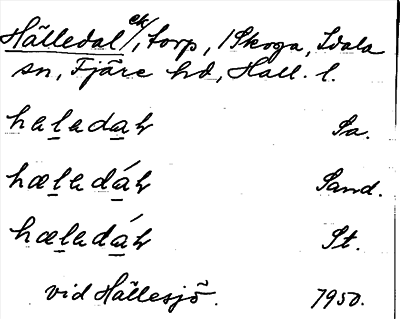 Hälledal ek/, torp, /Skoga, Idala
sn, Fjäre hd, Hall. l.
haladah Sa.
hæladáh Sand.
hæladáh St.
vid Hällesjö. 1950.